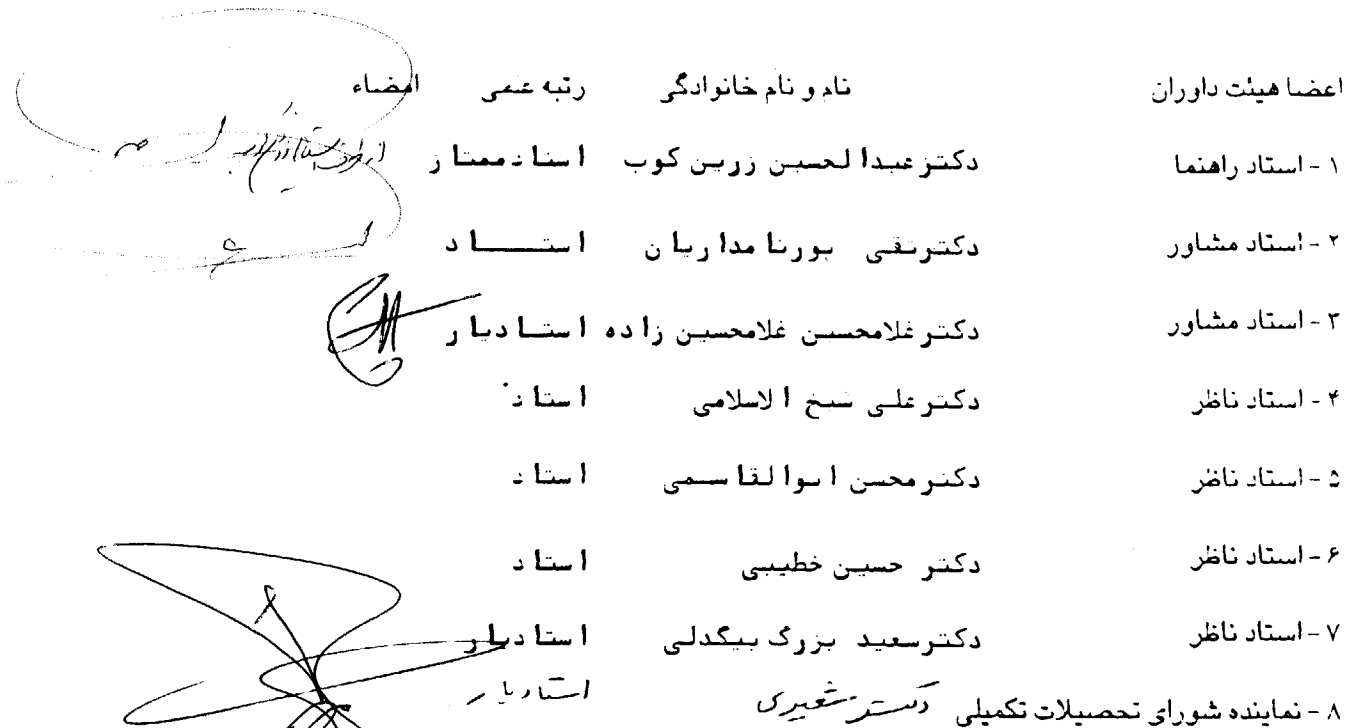 اعضا هیئت داوران نام و نام خانوادگی رتبه علمی امضاء
۱ - استاد راهنما دکتر عبدالحسین زرین کوب استاد ممتاز
۲ - استاد مشاور دکتر تقی پورنامداریان استاد
۳ - استاد مشاور دکتر غلامحسین غلامحسین زاده استادیار
۴ - استاد ناظر دکتر علی شیخ الاسلامی استاد
۵ - استاد ناظر دکتر محسن ابوالقاسمی استاد
۶ - استاد ناظر دکتر حسین خطیبی استاد
۷ - استاد ناظر دکتر سعید بزرگ بیگدلی استادیار
۸ - نماینده شورای تحصیلات تکمیلی دکتر شعیری استادیار